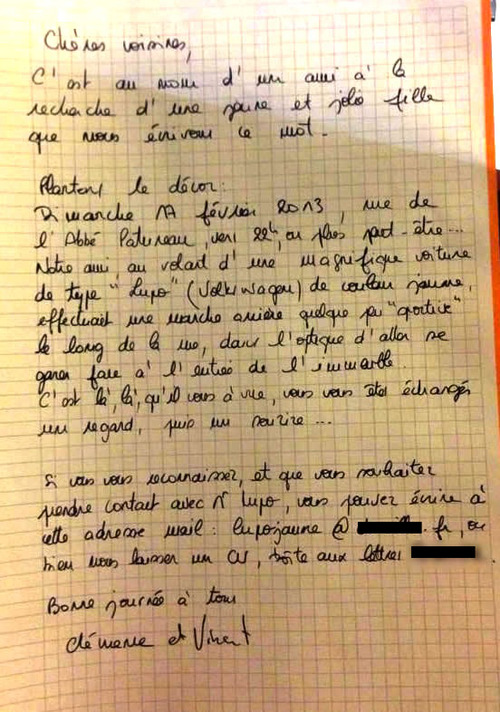 Chères voisines,
C'est au nom d'un ami à la
recherche d'une jeune et jolie fille
que nous écrivons ce mot.
Plantons le décor:
Dimanche 17 février 2013, rue de
l'Abbé Patureau, vers 22h, ou plus peut-être...
Notre ami, au volant d'une magnifique voiture
de type "Lupo" (Volkswagen) de couleur jaune,
effectuait une marche arrière quelque peu "sportive"
le long de la rue, dans l'optique d'aller se
garer face à l'entrée de l'immeuble.
C'est là, là, qu'il vous à vue, vous vous êtes échangés
un regard, puis un sourire...
Si vous vous reconnaissez, et que vous souhaitez
prendre contact avec Mr Lupo, vous pouvez écrire à
cette adresse mail: lupojaune@ .fr, ou
bien nous laisser un CV, boîte aux lettres
Bonne journée à tous
Clémence et Vincent